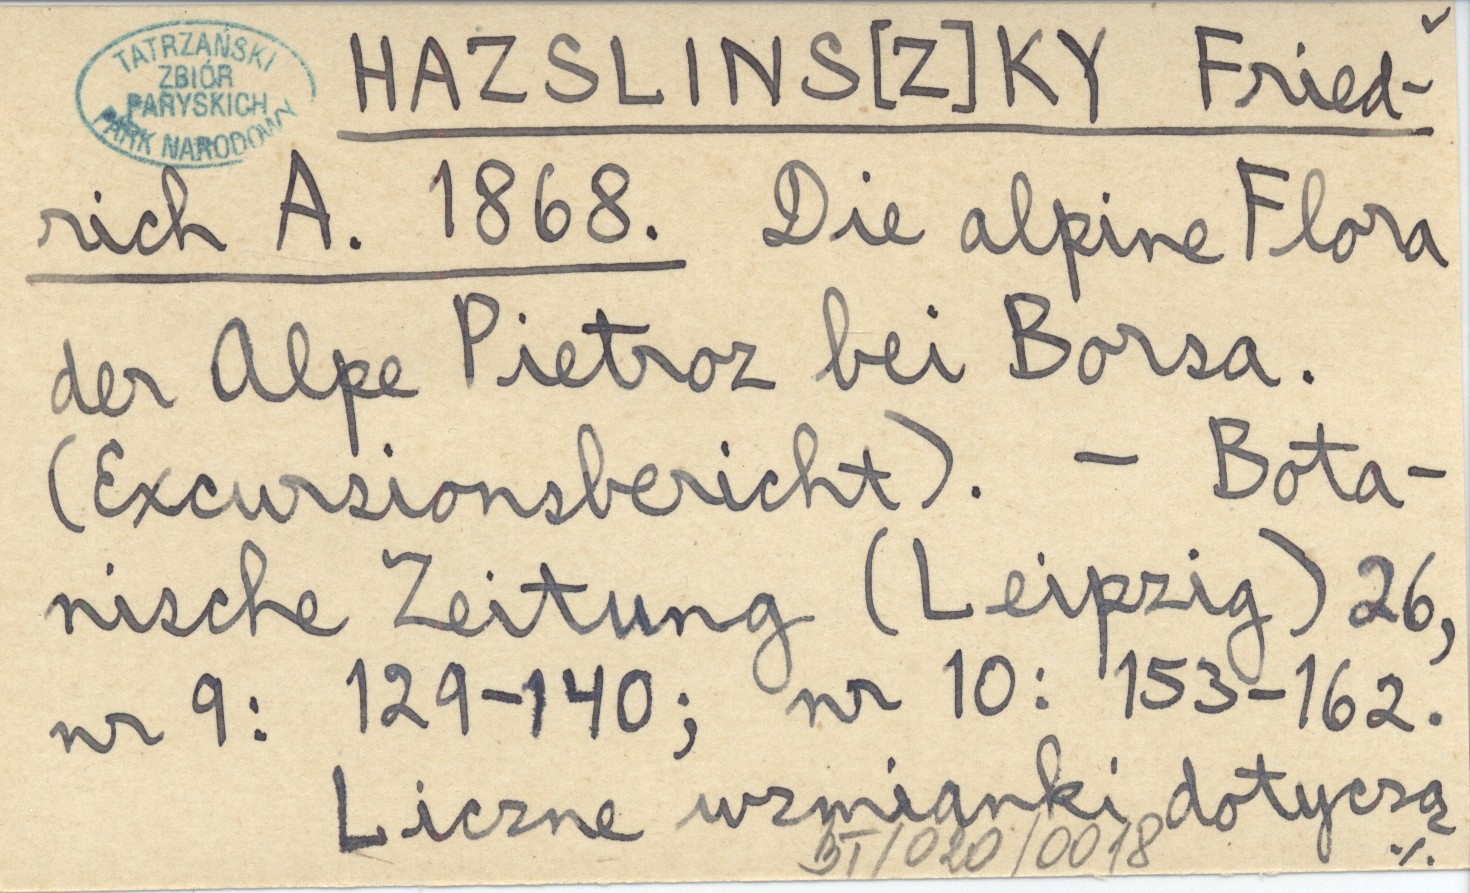 TATRZAŃSKI
ZBIÓR
PARYSKICH
PARK NARODOWY
HAZSLINS[Z]KY Fried-
rich A. 1868. Die alpine Flora
der Alpe Pietroz bei Borsa.
(Excursionsbericht). – Bota-
nische Zeitung (Leipzig) 26,
nr 9: 129-140; nr 10: 153-162.
Liczne wzmianki dotyczą
BT/020/0018
./.